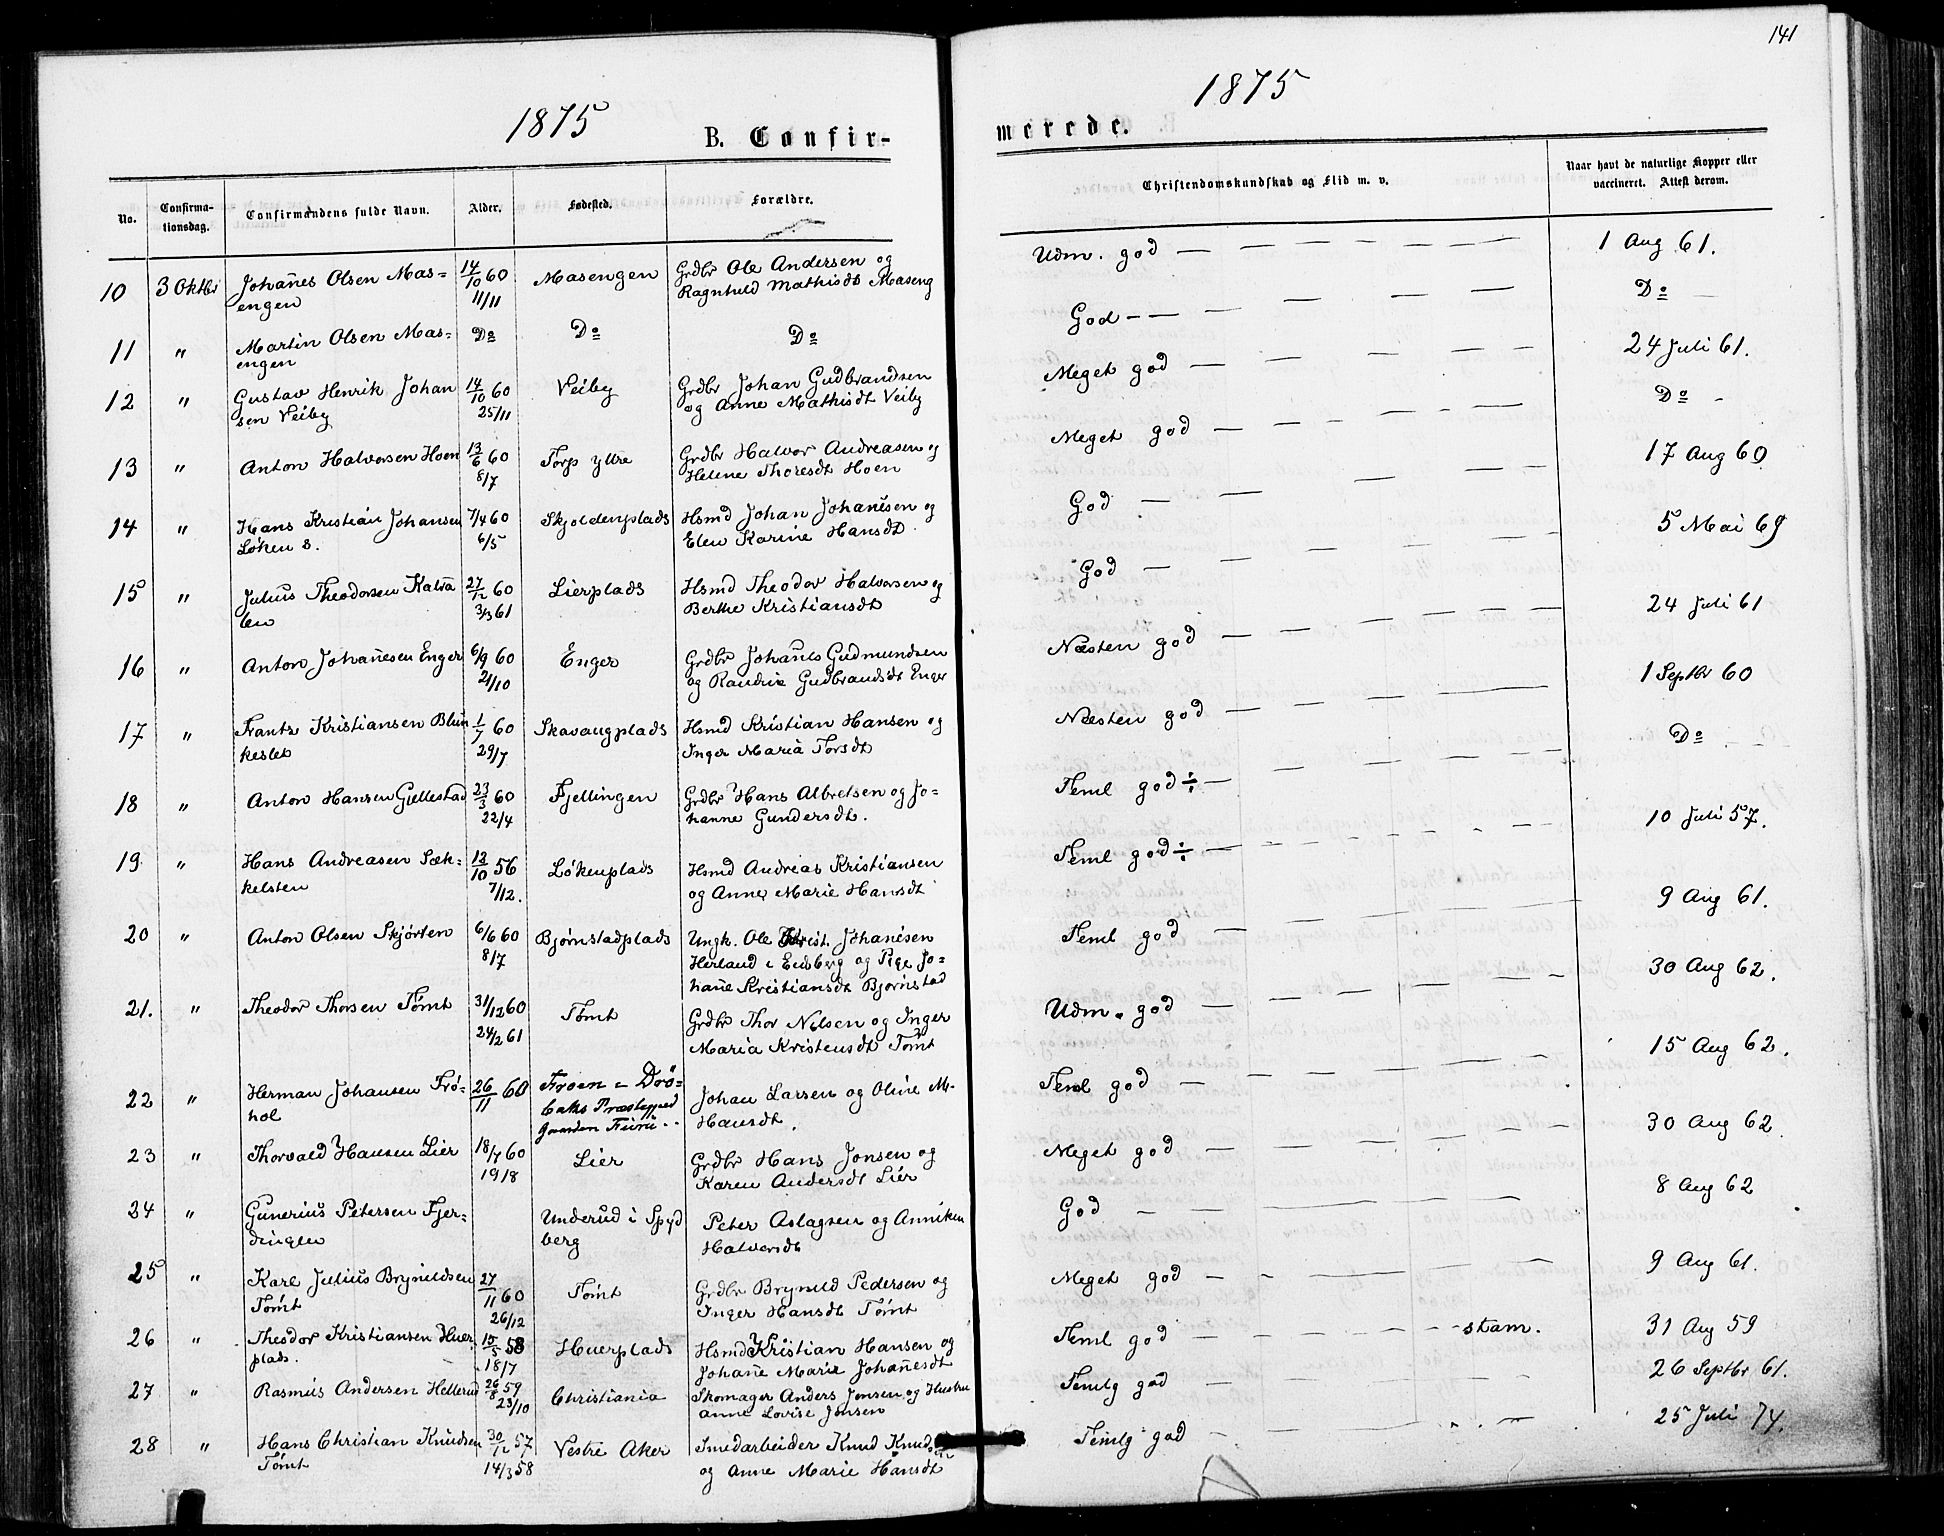 141
1875
1875
B. Confir-
merede.
No.
Confirma-
tionsdag.
Confirmandens fulde Navn.
Alder.
Fødested.
Forældre.
Christendomskundskab og Flid m. v.
Naar havt de naturlige Kopper eller
vaccineret. Attest derom.
10 3 Oktbr Johañes Olsen Mas= 14/10 60 Masengen Grdbr Ole Andersen og Udm. god — — — — — — 1 Aug 61.
engen 11/11 Ragnhild Mathisdt Maseng
11 " Martin Olsen Mas= Do Do Do God — — — Do —
engen
12 " Gustav Henrik Johan 14/10 60 Veiby Grdbr Johan Gudbrandsen Meget god — 24 Juli 61.
sen Veiby 25/11 og Anne Mathisdt Veiby
13 " Anton Halvorsen Hoen 13/6 60 Torp ytre Grdbr Halvor Andreasen og Meget god — Do -
8/7 Helene Thoresdt Hoen
14 " Hans Kristian Johansen 7/4 60 Skjoldenplads Hsmd Johan Johañesen og God — 17 Aug 60
Løken s. 6/5 Elen Karine Hansdt
15 " Julius Theodorsen Kalva 27/12 60 Lierplads Hsmd Theodor Halvorsen og God — 5 Mai 69
3/3 61 Berthe Kristiansdt
16 " Anton Johañesen Enger 6/9 60 Enger Grdbr Johañes Gudmundsen Næsten god — 24 Juli 61
21/10 og Randine Gudbrandsdt Enger
17 " Frants Kristiansen Blin 1/7 60 Skavaugplads Hsmd Kristian Hansen og Næsten god — 1 Septbr 60
keslet 29/7 Inger Maria Torsdt
18 " Anton Hansen Gjellestad 23/3 60 Fjellingen Grdbr Hans Albretsen og Jo= Teml god ÷ — Do
22/4 hanne Gundersdt.
19 " Hans Andreasen Sæk= 13/10 56 Løkenplads Hsmd Andreas Kristiansen Teml god ÷ — 10 Juli 57.
kelsten 7/12. og Anne Marie Hansdt
20 " Anton Olsen Skjørten 6/6 60 Bjørnstadplads Ungk. Ole Krist. Johañesen Teml god — 9 Aug 61.
8/7 Herland i Eidsberg og Pige Jo=
hañe Kristiansdt Bjørnstad
21. " Theodor Thorsen Tømt 31/12 60 Tømt Grdbr Thor Nilsen og Inger Udm. god — 30 Aug 62.
24/2 61 Maria Kristensdt Tømt
22 " Herman Johansen Frø= 26/11 60 Froen i Drö= Johan Larsen og Oline M. Teml god — 15 Aug 62.
hol baks Præstegjed Hansdt.
Gaarden
23 " Thorvald Hansen Lier 18/7 60 Lier Grdbr Hans Jonsen og Meget god — 30 Aug 62.
19/8 Karen Andersdt Lier
24 " Gunerius Petersen Fjer= Underud i Spyd Peter Aslagsen og Anniken God — 8 Aug 62
dingen berg Halvorsdt
25 " Karl Julius Brynildsen 27/11 60 Tømt Grdbr Brynild Pedersen og Meget god — 9 Aug 61.
Tømt 26/12 Inger Hansdt Tømt
26 " Theodor Kristiansen Huer 15/5 58 Huerplads Hsmd Kristian Hansen og Teml god — — stam. 31 Aug 59
plads. 18/7 Johañe Marie Johañesdt
27 " Rasmus Andersen Hellerud 26/8 59 Christiania Skomager Anders Jonsen og Hustru Temlg god — 26 Septbr 61.
23/10 Anne Lovise Jonsen
28 " Hans Christian Knudsen 30/12 57 Vestre Aker Smedarbeider Knud Knudsen Temlg god — 25 Juli 74.
Tømt 14/3 58 og Anne Marie Hansdt